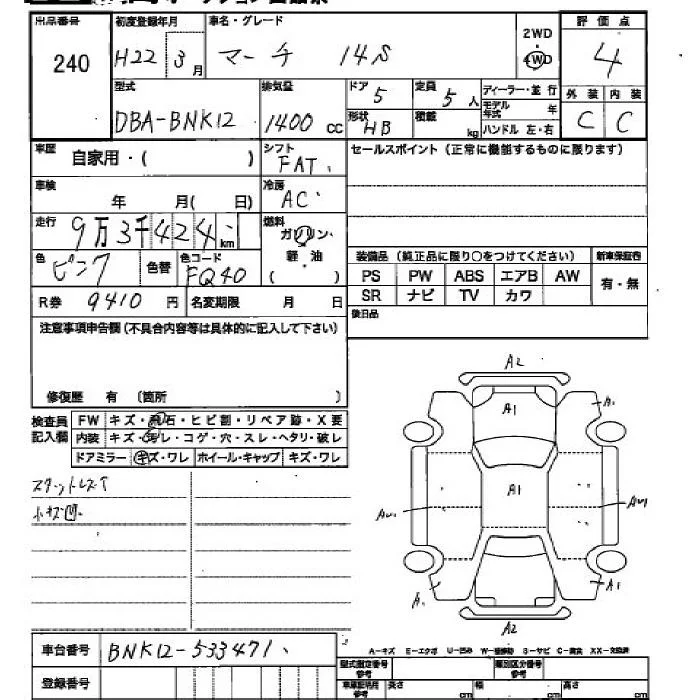 出品番号 初度登録年月 車名・グレード 2WD 評価点
240 H22 3月 マーチ 14S 4WD 4
型式 排気量 ドア 5 定員 5人 ディーラー・並行 外装 内装
DBA-BNK12 1400cc 形状 HB 積載 kg モデル年式 年 C C
ハンドル 左・右
車歴 自家用・( ) シフト FAT セールスポイント(正常に機能するものに限ります)
車検 年 月( 日) 冷房 AC
走行 9万3千424km 燃料 ガソリン・
色 ピンク 色替 色コード FQ40 軽油 ( ) 装備品(純正品に限り○をつけてください) 新車保証書
PS PW ABS エアB AW 有・無
R券 9410円 名変期限 月 日 SR ナビ TV カワ
注意事項申告欄(不具合内容等は具体的に記入して下さい) 後日品
修復歴 有 (箇所 )
検査員記入欄 FW キズ・飛石・ヒビ割・リペア跡・X要
内装 キズ・汚レ・コゲ・穴・スレ・ヘタリ・破レ
ドアミラー キズ・ワレ ホイール・キャップ キズ・ワレ
スタットレスT
小キズ凹
A2
A1
A1
A1
A2
車台番号 BNK12-533471
登録番号
A-キズ E-エクボ U-凹み S-サビ C-腐食 XX-交換済
型式指定番号 参考 類別区分番号 参考
長さ cm 幅 cm 高さ cm